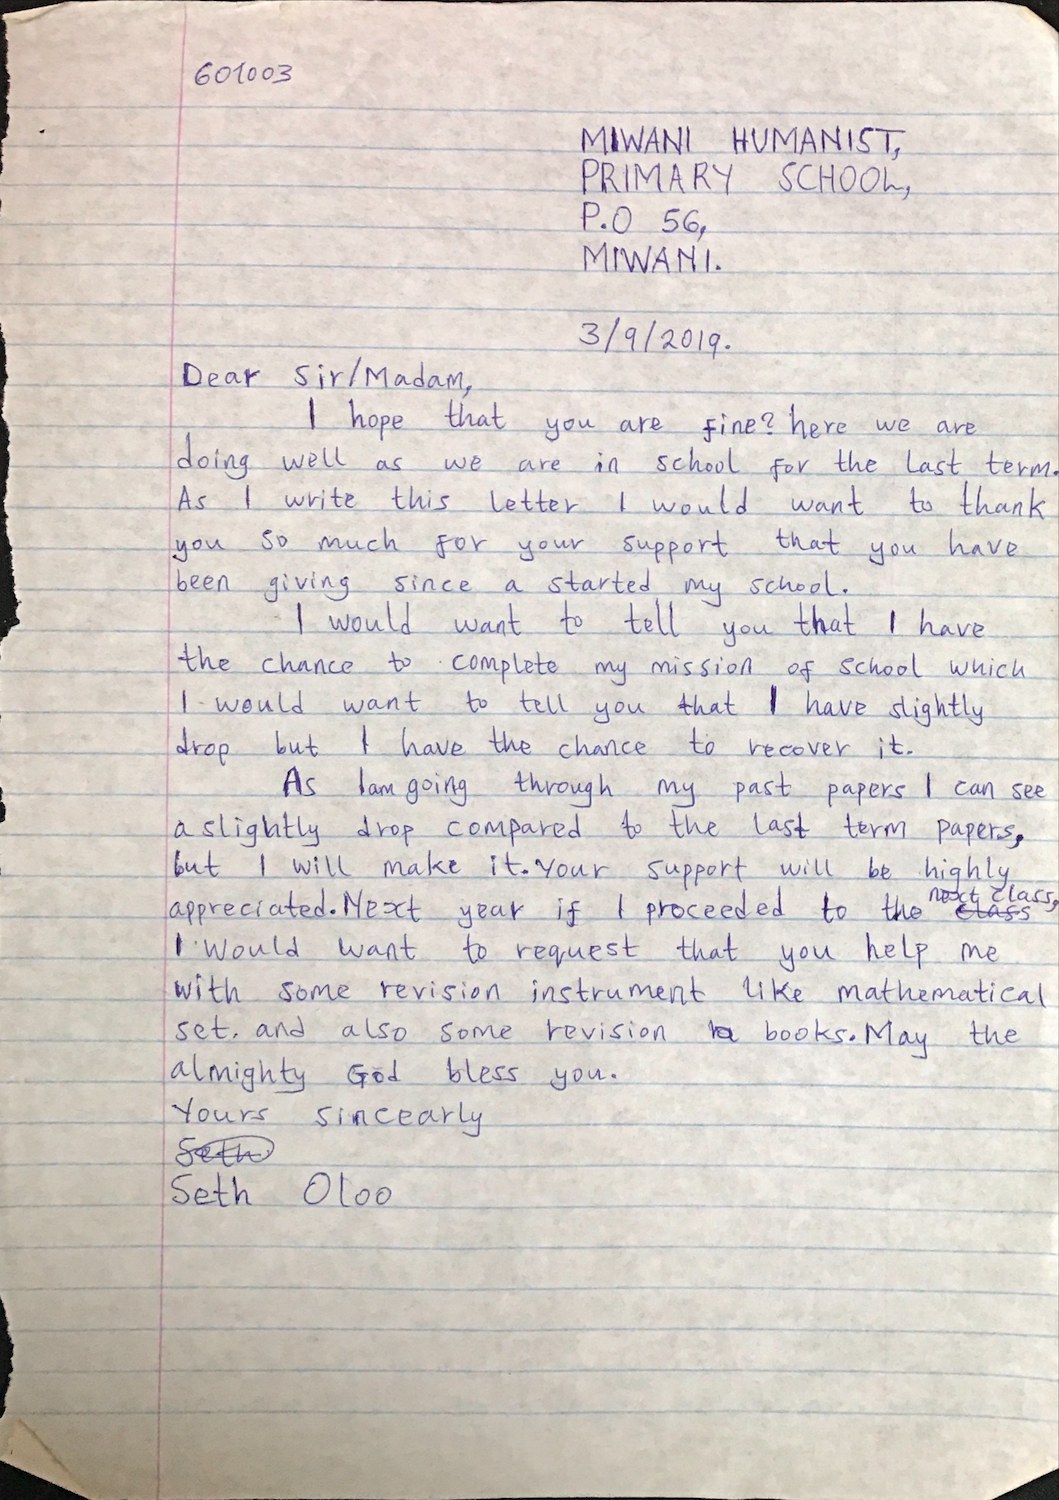 601003
MIWANI HUMANIST,
PRIMARY SCHOOL,
P.O 56,
MIWANI.
3/9/2019.
Dear Sir/Madam,
I hope that you are fine? here we are
doing well as we are in school for the last term.
As I write this letter I would want to thank
you so much for your support that you have
been giving since a started my school.
I would want to tell you that I have
the chance to complete my mission of school which
I would want to tell you that I have slightly
drop but I have the chance to recover it.
As I am going through my past papers I can see
a slightly drop compared to the last term papers,
but I will make it. Your support will be highly
appreciated. Next year if I proceeded to the next class,
I would want to request that you help me
with some revision instrument like mathematical
set. and also some revision books. May the
almighty God bless you.
Yours sincearly
Seth
Seth Oloo